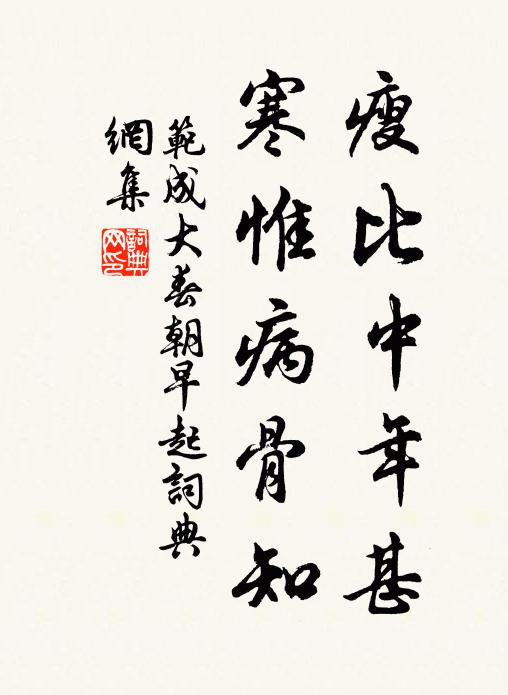 瘦比中年甚
寒惟病骨知
範成大春朝早起詞典
網集
詞典网印